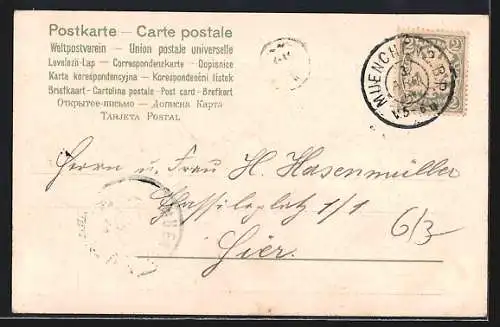 Postkarte — Carte postale
Weltpostverein — Union postale universelle
Levelezö-Lap — Correspondenzkarte — Dopisnice
Karta korespondencyjna — Korespondenční lístek
Briefkaart — Cartolina postale — Post card — Brefkort
Открытое-письмо — Дописна Карта
Tarjeta Postal
MUENCHEN
2
V. 5-6
Herrn u. Frau H. Hasenmüller
1/1
6/3
Hier.
MUEN